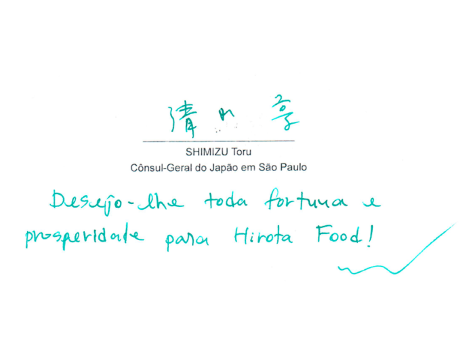 清水 享
SHIMIZU Toru
Cônsul-Geral do Japão em São Paulo
Desejo-lhe toda fortuna e
prosperidade para Hirota Food!